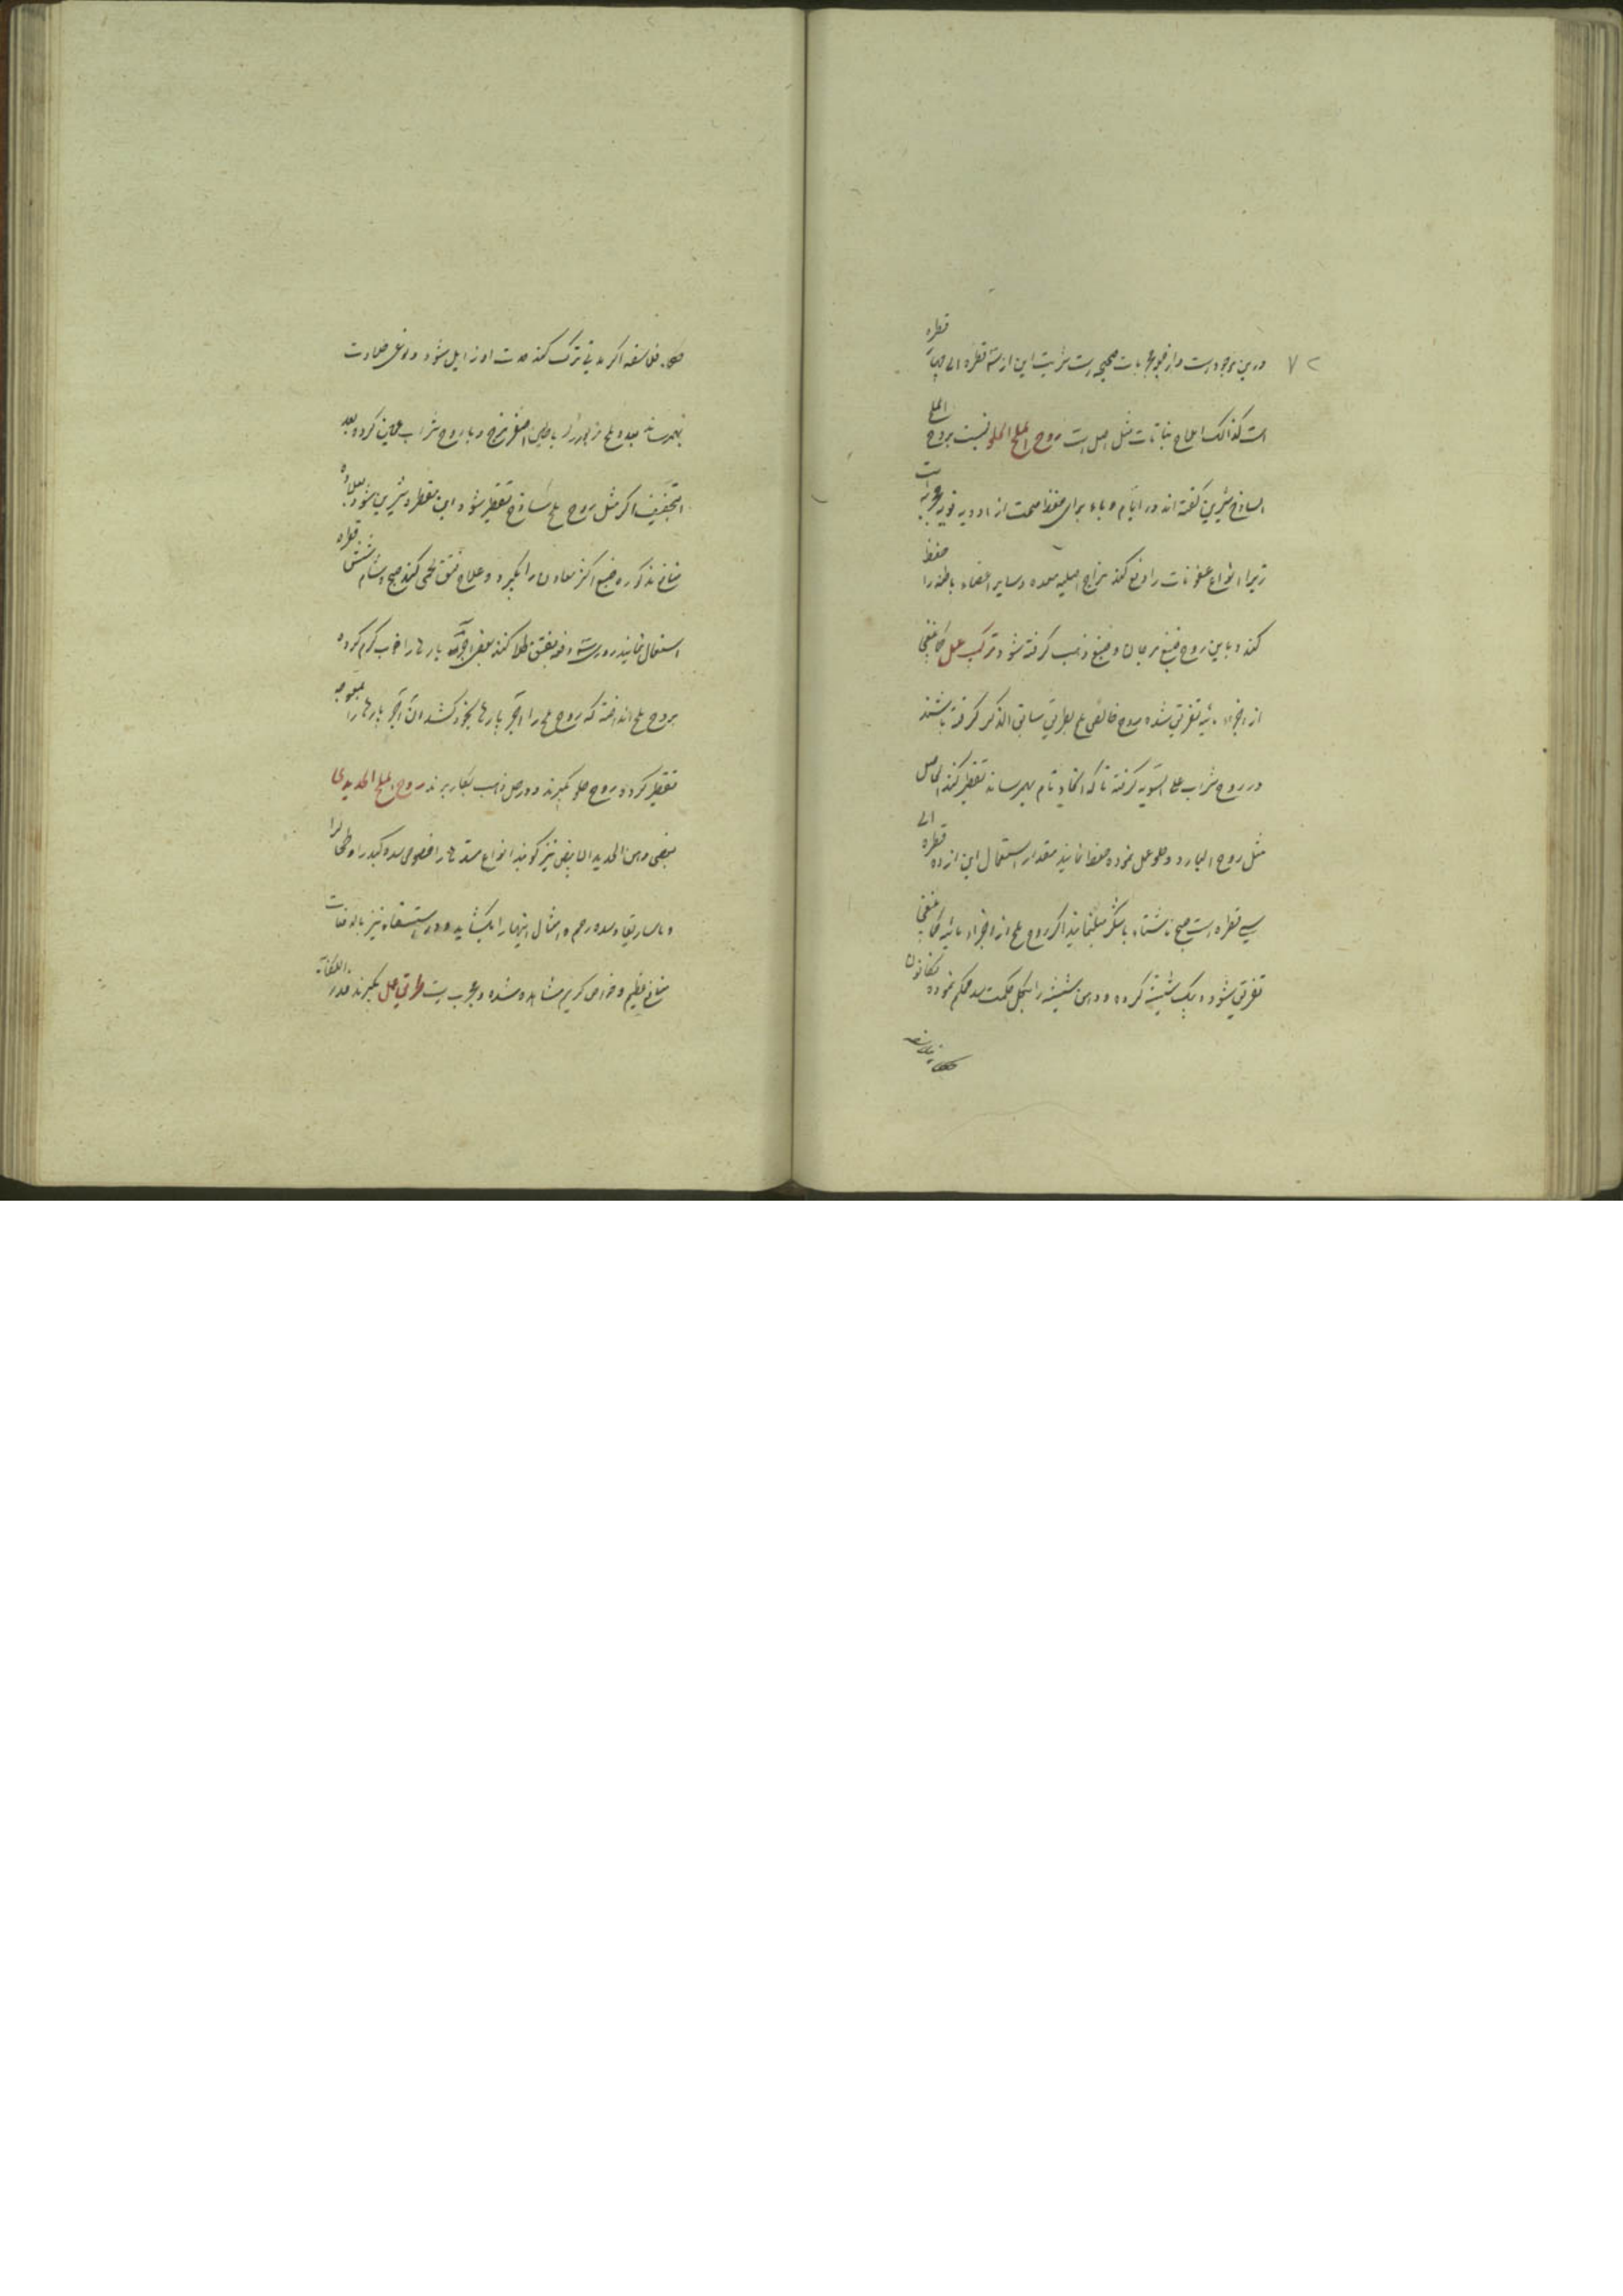 ۷۲
درین موجودست و از جمله مجربات صحیحه است شربت این از سه قطره الی چهار قطره
است کذالک املاح نباتات مثل اصل است روح الملح الحلو نسبت بروح الملح
الساذج شیرین گفته اند در ایام وباء برای حفظ صحت از ادویه قویه مجربه است
زیرا انواع عفونات را دفع کند مزاج اصلیه معده و سایر اعضاء باطنه را حفظ
کند و باین روح صبغ مرجان و صبغ ذهب گرفته شود ترکیب عمل کما ینبغی
از اجزاء مائیه تفریق شده روح خالص ملح بطریق سابق الذکر گرفته باشند
در روح شراب علی السویه گرفته تا که اتحاد تام بهم رساند تقطیر کنند الحاصل
مثل روح البارد و حلو عمل نموده حفظ نمایند مقدار استعمال این از ده قطره الی
سی قطره است صبح ناشتاء باشکر میل نمایند اگر روح ملح از اجزاء مائیه کما ینبغی
تفریق شود بیک شیشه کرده و دهن شیشه را بگل حکمت سد محکم نموده بکانون
حکمای فلاسفه
حکماء فلاسفه اگر مدتی ترک کنند حدت او زایل شود و نوعی حلاوت
بهم رساند بعده ملح مزبور را با طین اصفر مزج و با روح شراب عجین کرده بعد
التجفیف اگر مثل روح ملح ساذج تقطیر شود این مقطره شیرین شود بعلاوه
منافع مذکوره صبغ اکثر معادن را بگیرد و علاج فتق لحمی کند صبح و شام شش قطره
استعمال نمایند روزی سه دفعه بفتق طلا کنند بعض آجر پارها را خوب گرم کرده
بروح ملح انداخته که روح ملح را آجر پارها بخود کشد آن آجر پارها را بقوه
تقطیر کرده روح حلو بگیرند و در حل ذهب بکار برند روح الملح الحدیدی
بعضی دهن الحدید الابیض نیز گویند انواع سده ها را خصوص سده کبد را و طحال را
و ماساریقا و سده رحم و امثال اینها را بگشاید و در استسقاء نیز بالدفعات
منافع عظیم و خواص کریم مشاهده شده و مجرب است طریق عمل بگیرند قدر الکفایه